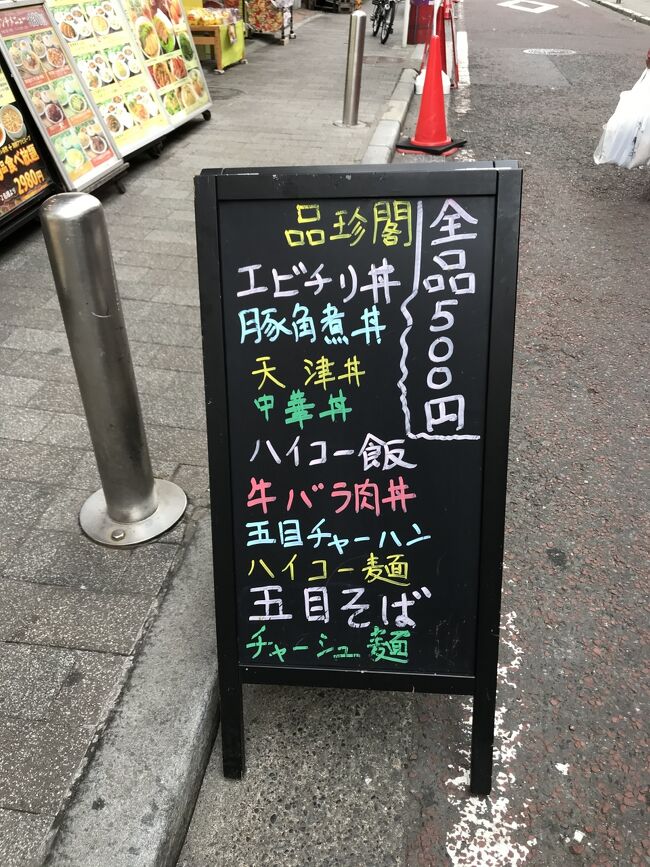 品珍閣
全品500円
エビチリ丼
豚角煮丼
天津丼
中華丼
ハイコー飯
牛バラ肉丼
五目チャーハン
ハイコー麺
五目そば
チャーシュー麺
食べ放
2980円